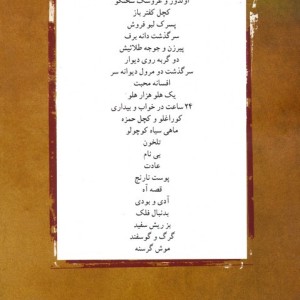 اولدوز و عروسک سخنگو
کچل کفتر باز
پسرک لبو فروش
سرگذشت دانه برف
پیرزن و جوجه طلائیش
دو گربه روی دیوار
سرگذشت دو مرول دیوانه سر
افسانه محبت
یک هلو هزار هلو
۲۴ ساعت در خواب و بیداری
کوراغلو و کچل حمزه
ماهی سیاه کوچولو
تلخون
بی نام
عادت
پوست نارنج
قصه آه
آدی و بودی
بدنبال فلک
بز ریش سفید
گرگ و گوسفند
موش گرسنه